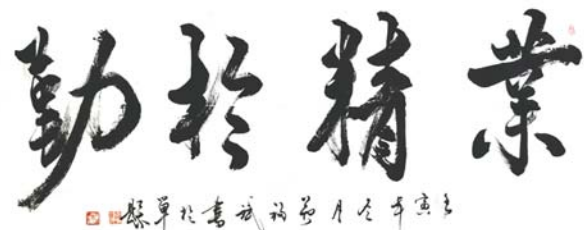 業精於勤
壬寅年冬月 福斌書於單縣